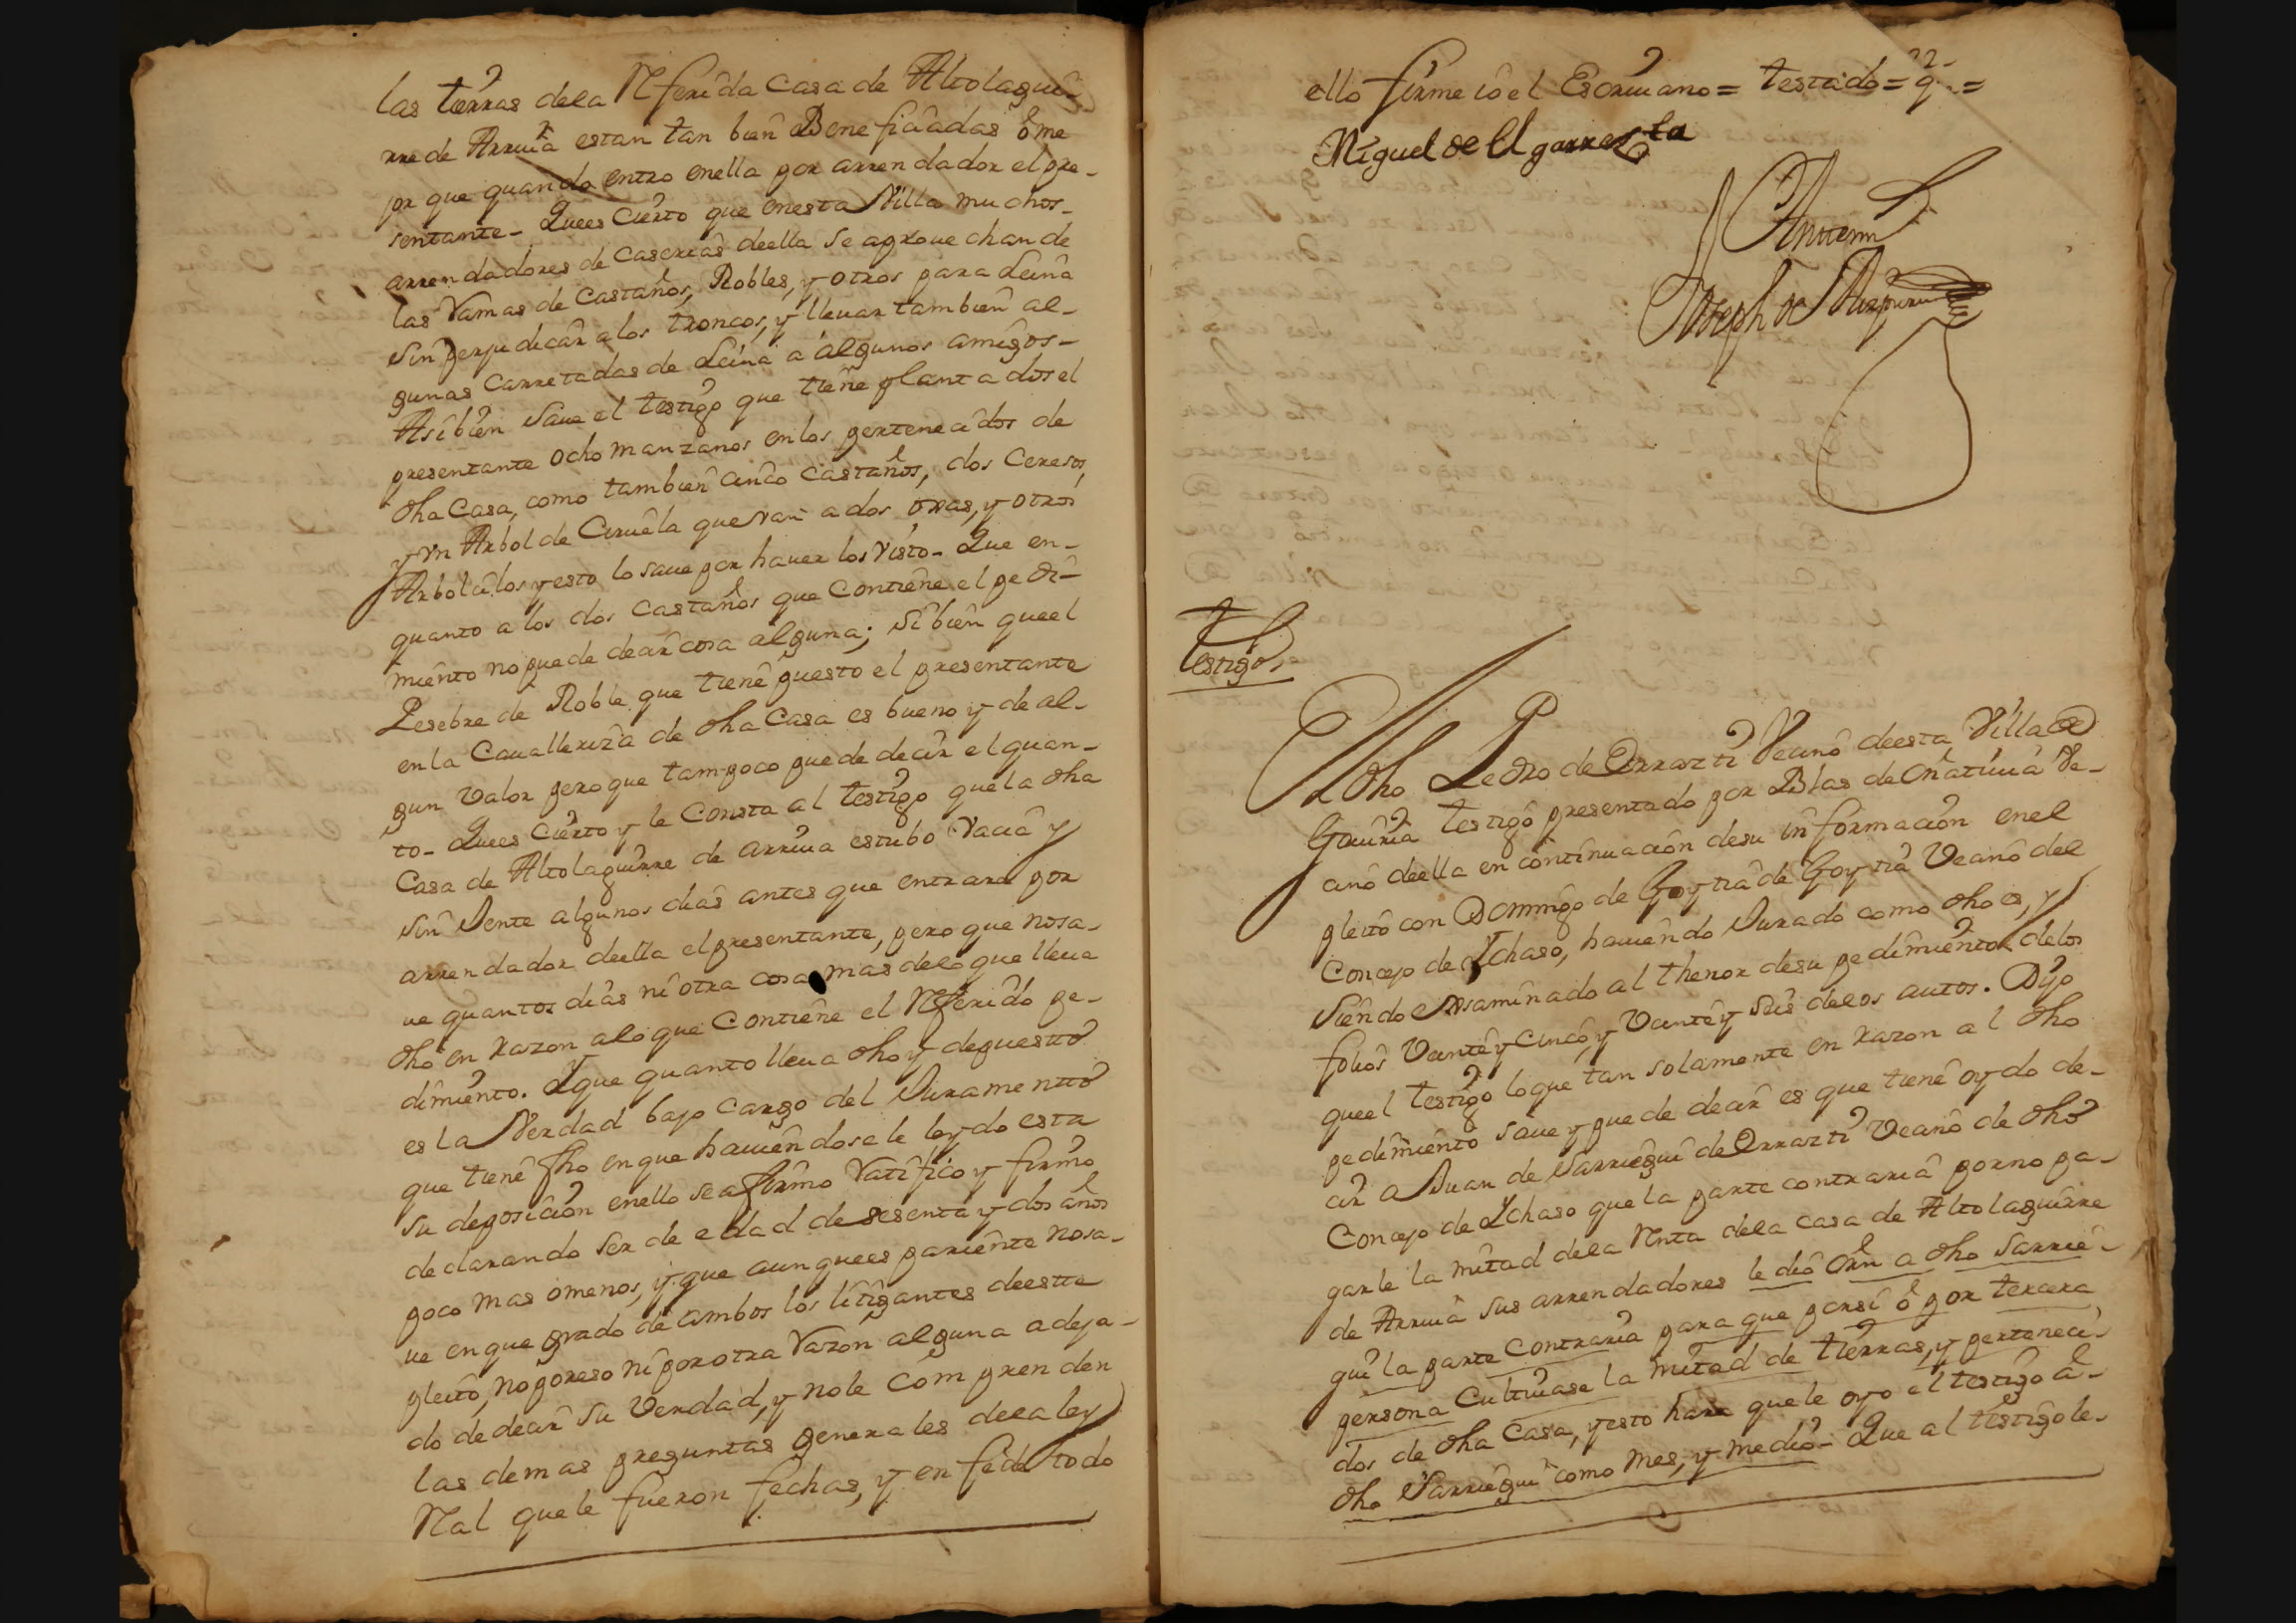 las tierras dela Referida Casa de Altolaguir-
rre de Arriua estan tan bien Beneficiadas ô me
jor que quando entro enella por arrendador el pre-
sentante - Quees Cierto que enesta Villa muchos-
arrendadores de Caserias deella se aprouechan de
las Ramas de Castaños, Robles, y otros para Leina
sin perjudicar alos troncos, y lleuar tambien al-
gunas Carretadas de Leina a algunos amigos-
Asibien saue el testigo que tiene plantados el
presentante ocho manzanos enlos pertenecidos de
dha Casa, como tambien cinco castaños, dos Ceresos,
y vn Arbol de Ciruela que van a dos oxas, y otros
Arbolillos y esto lo saue por hauer los visto - Que en-
quanto a los dos castaños que Contiene el pedi-
miento no puede decir cosa alguna; si bien queel
Pesebre de Roble que tiene puesto el presentante
en la Caualleriza de dha Casa es bueno y de al-
gun Valor pero que tampoco puede decir el quan-
to - Quees cierto y le Consta al testigo quela dha
Casa de Altolaguirre de arriua estubo Vacia y
sin Jente algunos dias antes que entrara por
arrendador deella el presentante, pero que nosa-
ue quantos dias ni otra cosa mas delo que lleua
dho en razon alo que Contiene el Referido pe-
dimiento. Y que quanto lleua dho y depuestto
es la Verdad bajo cargo del Juramentto
que tiene fho en que hauiendosele leydo esta
su deposicion enello se afirmo Ratifico y firmo
declarando ser de edad de sesenta y dos años
poco mas omenos, y que aunquees pariente nosa-
ue en que grado de ambos los litigantes deestte
pleito, no poreso ni porotra Razon alguna adeja-
do de decir su Verdad, y nole comprenden
las demas preguntas generales dela ley
Real quele fueron fechas, y en fe de todo
ello firme io el Escriuano = testado = q =
Miguel de Ugarrestta
Antemi
Joseph de Aizpuru
Testigo
El dho Pedro de Orrazti Vecino deesta Villa de
Gauiria testigo presentado por Blas de Oñatiuia Ve-
cino deella en continuacion desu informacion enel
pleito con Domingo de Goytia de Goytia Vecino del
Concejo de Ychaso, hauiendo Jurado como dho es, y
siendo exsaminado al thenor desu pedimiento delos
folios Veinte y cinco, y Veinte y seis delos autos. Dijo
queel testigo loque tan solamente en razon al dho
pedimiento saue y puede decir es que tiene oydo de-
cir a Juan de Sarriegui de Orrazti Vecino de dho
Concejo de Ychaso que la parte contraria por no pa-
garle la mitad dela Renta dela casa de Altolaguirre
de Arriua sus arrendadores le dio orn a dho Sarrie-
gui la parte Contraria para que porsi ô por tercera
persona Cultiuase la mitad de tierras, y perteneci-
dos de dha Casa, y esto hara que le oyo el testigo â-
dho Sarriegui como mes, y medio - Que al testigo le-